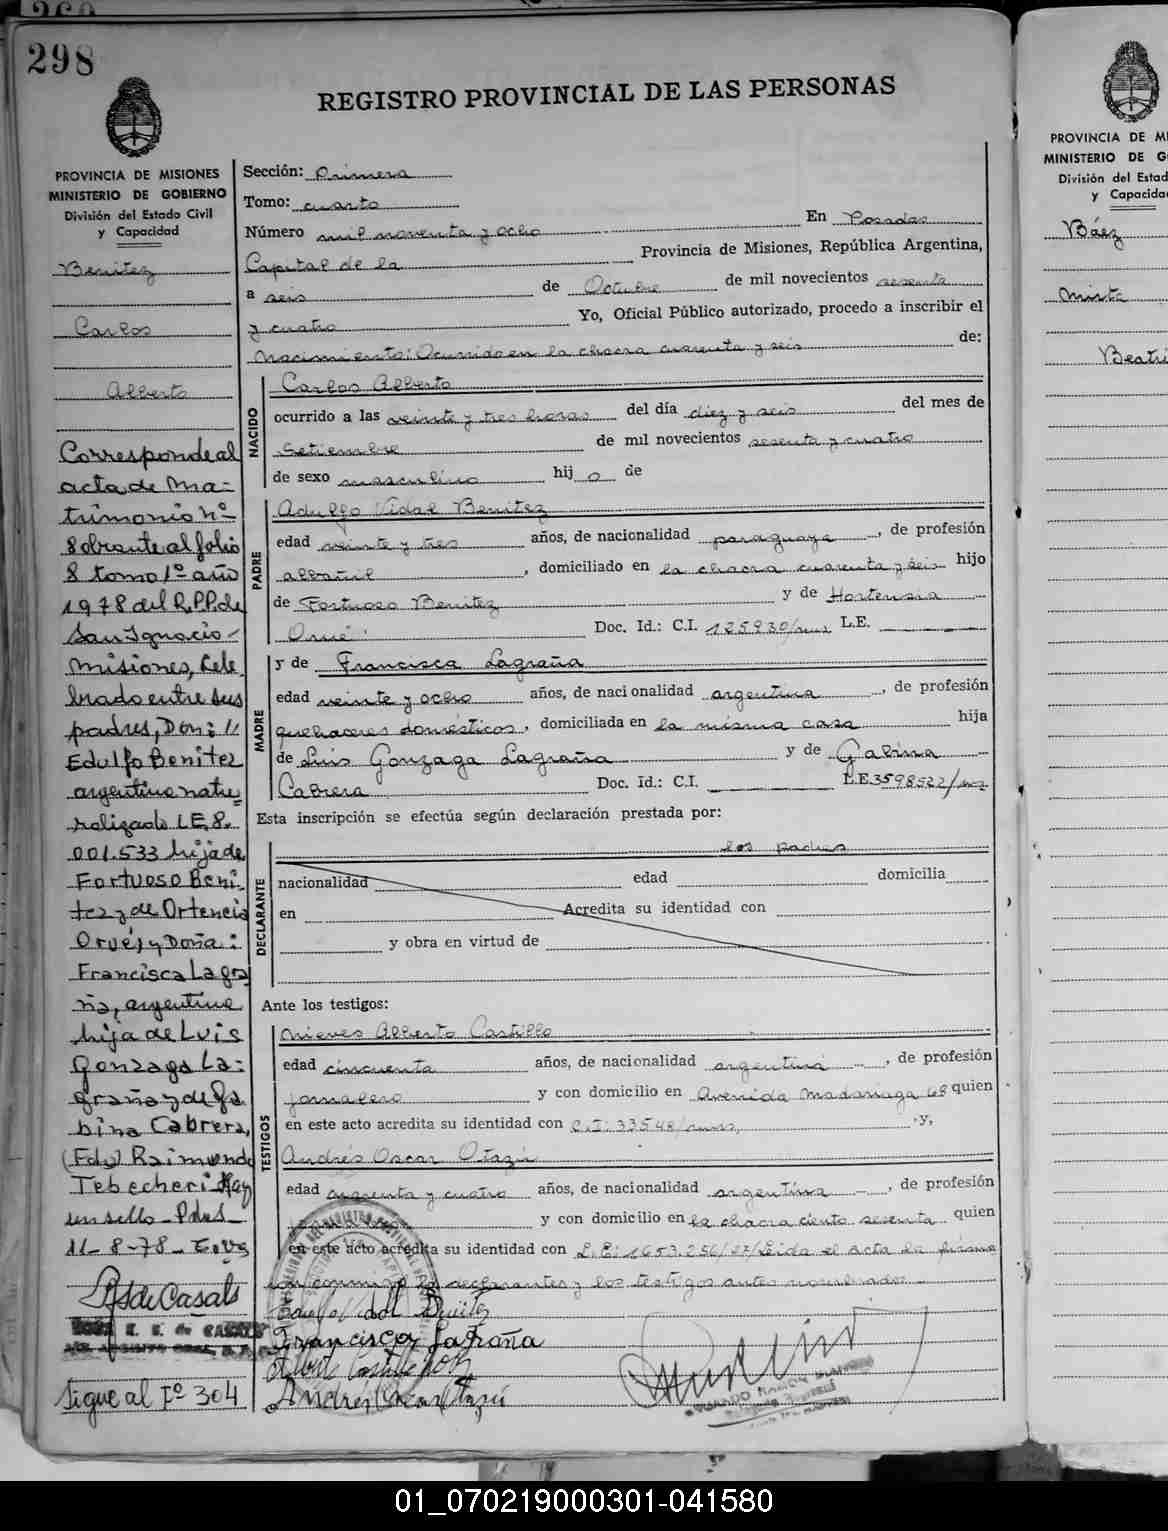 298
REGISTRO PROVINCIAL DE LAS PERSONAS
PROVINCIA DE MISIONES
MINISTERIO DE GOBIERNO
División del Estado Civil
y Capacidad
Benitez
Carlos
Alberto
Corresponde al
acta de Ma-
trimonio nº
8 obrante al folio
8 tomo 1º año
1978 del R.P.P. de
San Ignacio-
Misiones, Cele
brado entre sus
padres, Don:
Edulfo Benitez
argentino natu-
ralizado L.E. 8.
001.533 hijo de
Fortuoso Beni-
tez y de Ortencia
Orué, y Doña:
Francisca Lagra
ña, argentina
hija de Luis
Gonzaga La-
graña y de Ga
bina Cabrera,
(Fdo) Raimundo
Tebecheri Hay
un sello - Pdas -
11-8-78-
Sigue al Fº 304
Sección: Primera
Tomo: cuarto
Número mil noventa y ocho En Posadas
Capital de la Provincia de Misiones, República Argentina,
a seis de Octubre de mil novecientos sesenta
y cuatro Yo, Oficial Público autorizado, procedo a inscribir el
Nacimiento: Ocurrido en la chacra cuarenta y seis de:
NACIDO
Carlos Alberto
ocurrido a las veinte y tres horas del día diez y seis del mes de
Setiembre de mil novecientos sesenta y cuatro
de sexo masculino hij o de
PADRE
Adulfo Vidal Benitez
edad veinte y tres años, de nacionalidad paraguaya, de profesión
albañil, domiciliado en la chacra cuarenta y seis hijo
de Fortuoso Benitez y de Hortensia
Orué. Doc. Id.: C.I. 125930/mnes L.E.
MADRE
y de Francisca Lagraña
edad veinte y ocho años, de nacionalidad argentina, de profesión
quehaceres domésticos, domiciliada en la misma casa hija
de Luis Gonzaga Lagraña y de Gabina
Cabrera Doc. Id.: C.I. L.E. 3598522/
Esta inscripción se efectúa según declaración prestada por:
DECLARANTE
los padres
nacionalidad edad domicilia
en Acredita su identidad con
y obra en virtud de
Ante los testigos:
TESTIGOS
Nieves Alberto Castillo
edad cincuenta años, de nacionalidad argentina, de profesión
jornalero y con domicilio en Avenida Madariaga 68 quien
en este acto acredita su identidad con C.I: 33548/mnes, y,
Andrés Oscar Otazú
edad cuarenta y cuatro años, de nacionalidad argentina, de profesión
y con domicilio en la chacra ciento sesenta quien
en este acto acredita su identidad con L.E: 1653.256/ Leida el acta la firman
con conmigo los declarantes y los testigos antes nombrados.
Vidal Benitez
Francisca Lagraña
Andrés Oscar Otazú
PROVINCIA DE MI
MINISTERIO DE G
División del Estad
y Capacida
Báez
Mirta
Beatri
01_070219000301-041580